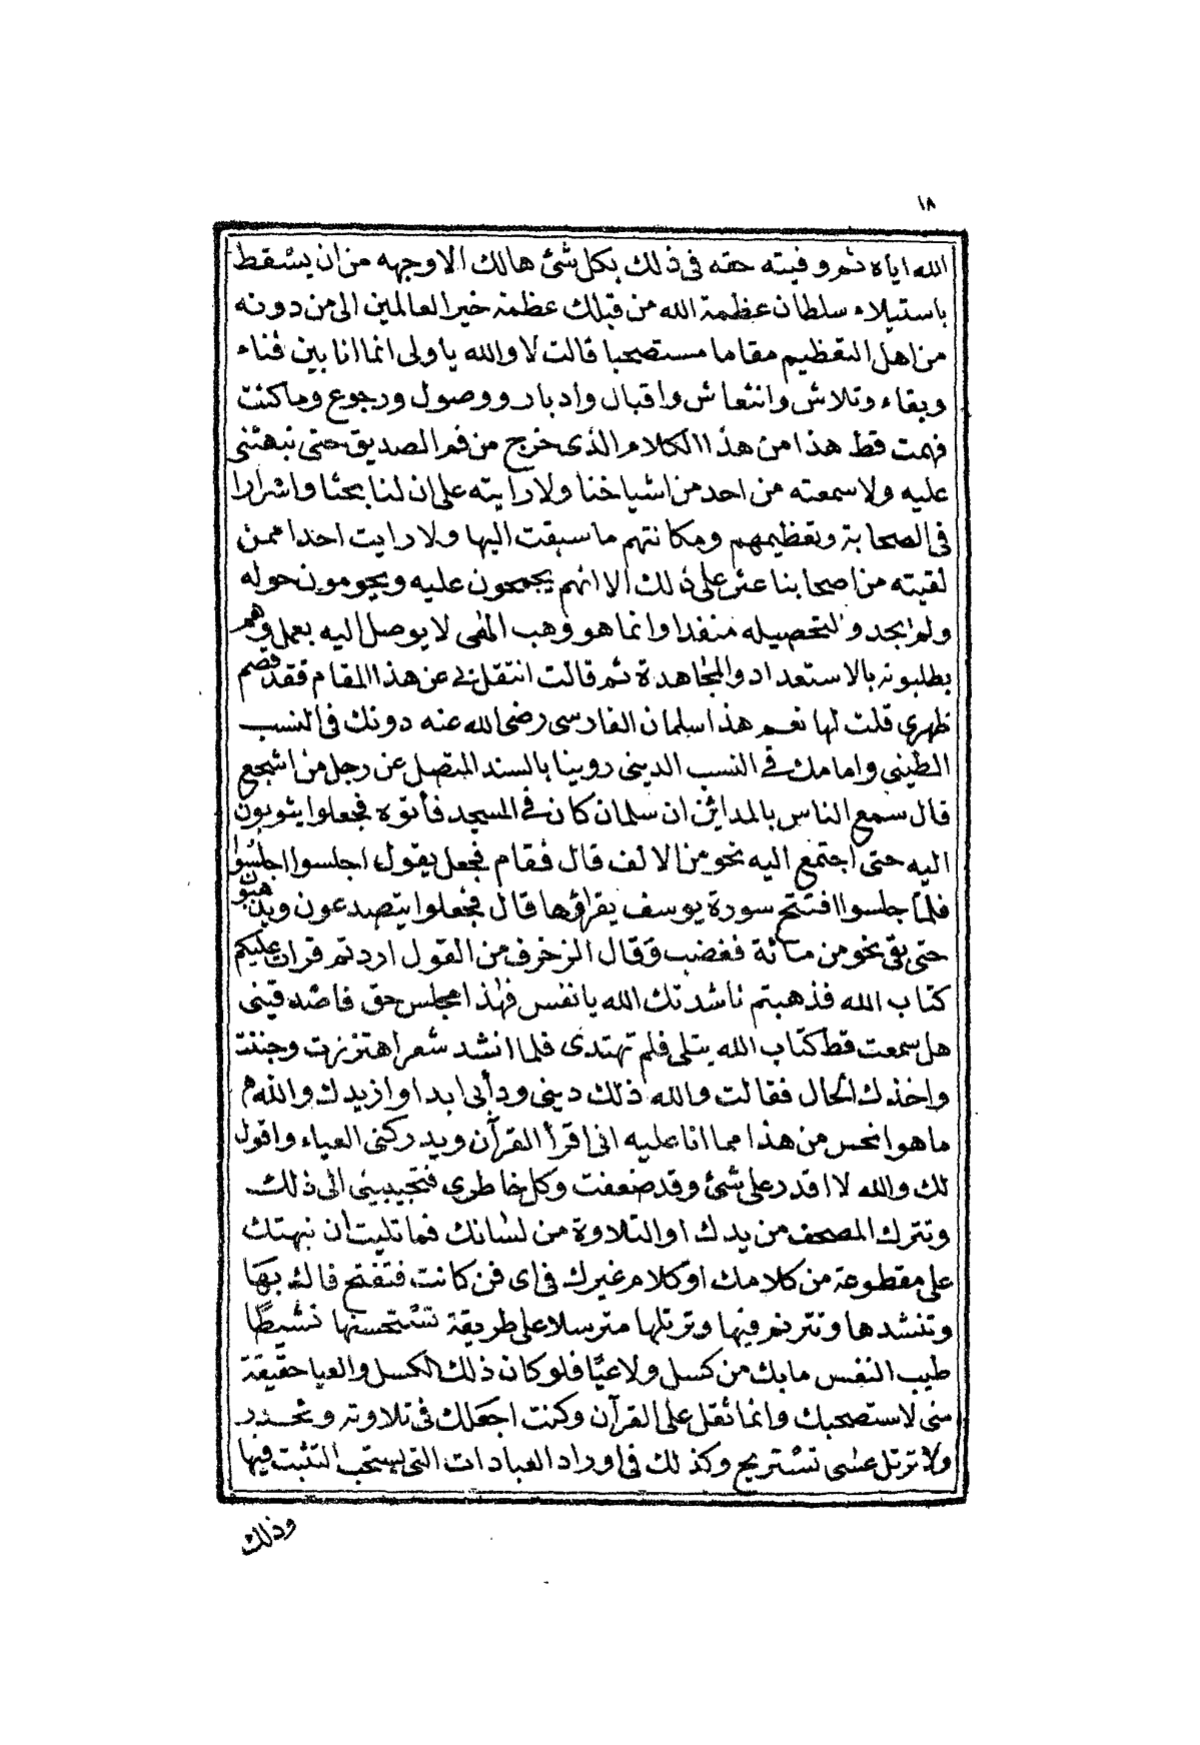 ١٨
الله اياه ثم وفيته حقه فى ذلك بكل شئ هالك الا وجهه من ان يسقط
باستيلاء سلطان عظمة الله من قبلك عظمة خير العالمين الى من دونه
من اهل التعظيم مقاما مستصحبا قالت لا والله يا ولى انما انا بين فناء
وبقاء وتلاش وانتعاش واقبال وادبار ووصول ورجوع وما كنت
فهمت قط هذا من هذا الكلام الذى خرج من فم الصديق حتى نبهتنى
عليه ولا سمعته من احد من اشياخنا ولا رايته على ان لنا بحثا واشرارا
فى الصحابة وتعظيمهم ومكانتهم ما سبقت اليها ولا رايت احدا ممن
لقيته من اصحابنا عثر على ذلك الا انهم يجمعون عليه ويحومون حوله
ولم يجدوا لتحصيله منفذا وانما هو وهب الهى لا يوصل اليه بعمل وهم
يطلبونه بالاستعداد والمجاهدة ثم قالت انتقل بى عن هذا المقام فقد قصم
ظهرى قلت لها نعم هذا سلمان الفارسى رضى الله عنه دونك فى النسب
الطينى وامامك فى النسب الدينى روينا بالسند المتصل عن رجل من اشجع
قال سمع الناس بالمدائن ان سلمان كان فى المسجد فأتوه فجعلوا يثوبون
اليه حتى اجتمع اليه نحو من الالف قال فقام فجعل يقول اجلسوا اجلسوا
فلما جلسوا افتتح سورة يوسف يقرؤها قال فجعلوا يتصدعون ويذهبون
حتى بقى نحو من مائة فغضب وقال الزخرف من القول اردتم قرات عليكم
كتاب الله فذهبتم ناشدتك الله يا نفس فهذا مجلس حق فاصدقينى
هل سمعت قط كتاب الله يتلى فلم تهتدى فلما انشد شعر اهتززت وجننت
واخذك الحال فقالت والله ذلك دينى ودأبى ابدا وازيدك والله
ما هو انحس من هذا مما انا عليه انى اقرأ القرآن ويدركنى العياء واقول
لك والله لا اقدر على شئ وقد ضعفت وكل خاطرى فتجيبينى الى ذلك
وتترك المصحف من يدك او التلاوة من لسانك فما تليت ان نبهتك
على مقطوعة من كلامك او كلام غيرك فى اى فن كانت فتفتح فاك بها
وتنشدها وتترنم فيها وترتلها مترسلا على طريقة تستحسنها نشيطا
طيب النفس ما بك من كسل ولا عيا فلو كان ذلك الكسل والعيا حقيقة
منى لاستصحبك وانما ثقل على القرآن وكنت اجعلك فى تلاوته وتحدر
ولا ترتل عسى تستريح وكذلك فى اوراد العبادات التى يستحب التثبت فيها
وذلك